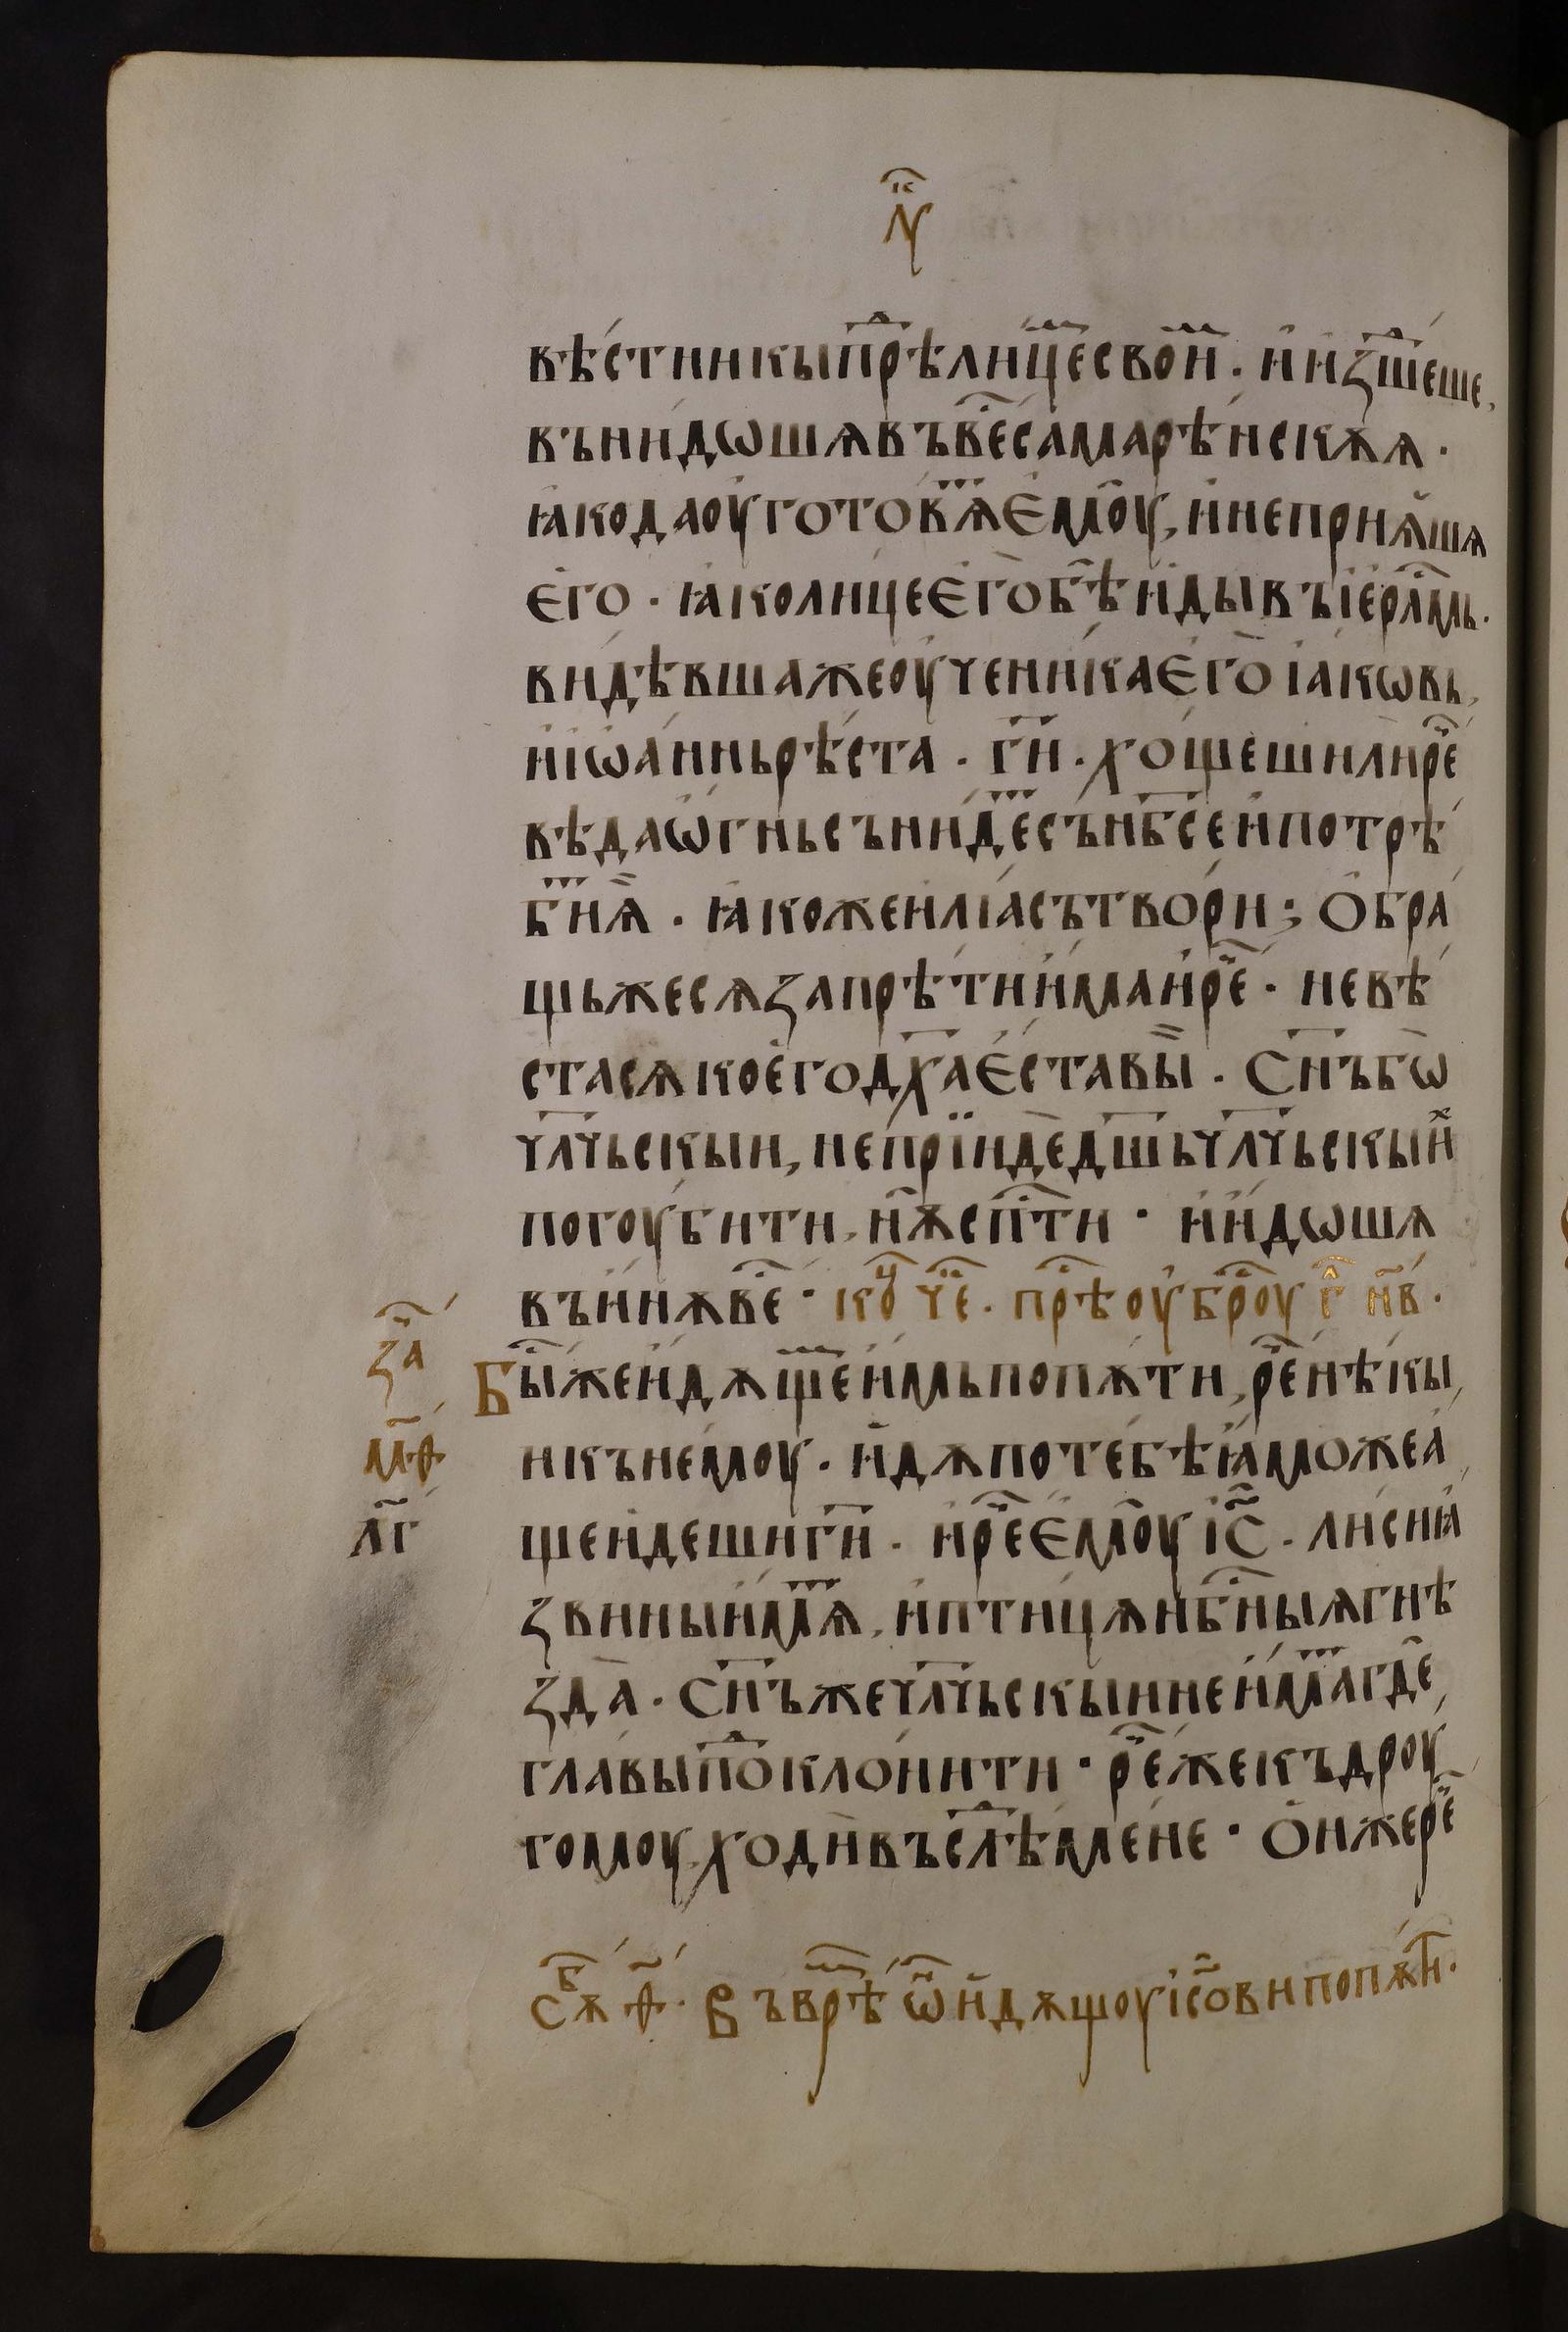 лꙋⷦ҇
вѣ́стникыпрѣⷣлице́мⷭ҇вои́мⷯ. и҆и҆зше́дⷣше,
въни́дѡшѧвъве́сⷭ҇самарѣ́нскѫѧ.
ꙗ҆кодаоу҆гото́вѧтⷮє҆моу̑, и҆неприѧ́шѧ
є҆го. ꙗ҆колицеє҆го̀бѣ̑и҆дыи҆въі҆ерⷭ҇лмь.
ви́дѣвшажеоу҆чени́кає҆го̀і҆а́кѡвь,
и҆і҆ѡа́нньрѣ́ста. г҃и. хо́щешилире́че
вѣда́ѡ҆гньсъни́детⷮсън҃бсеи҆потрѣ́
би́тⷮѧ̀. ꙗ҆кожеи҆лі́асътво́ри; Ѻ҆бра́
щьжесѧзапрѣ́тии҆́маи҆ре́чⷱ҇е. невѣ́
стасѧкоє҆год҃хає҆́ставы̀. С҃нъбѡ
ч҃лчьскыи, непрїи́дед҃шьч҃лчьскыиⷯ
погоу́бити, нѫ̑сп҃сти. и҆и҆́дѡшѧ
въи҆́нѫвⷭ҇е. коⷰ҇ чеⷮ. прⷣѣоу҆брⷪ҇оу г҃ н҃в.
заⷱ҇ Бы҆́жеи҆дѫ́щеⷨи҆мьпопѫти, речⷱ҇енѣ́кы,
м҃ѳ҃ икънемоу. и҆дѫпоте́бѣꙗ҆́можеа́
л҃г щеи҆дешиг҃и. и҆речⷱ҇ее҆моу̑і҃с. лисиꙗ҆́
звиныи҆́мѫтⷮ, и҆птицѧн҃бⷭ҇ныѧгнѣ
зда̀. С҃нъжеч҃лчьскыинеи҆́матⷮгде,
главыпо́дⷣклони́ти. речⷱ҇ежекъдроу
гомоу, ходи̑въслѣ́дⷣмене. Ѻ҆нжеречⷱ҇е
сѫⷠ҇ ѳ҃. Въврѣⷨ ѡ҆́ⷩ҇ и҆дѫщоуі҆с҃овипопѫти.